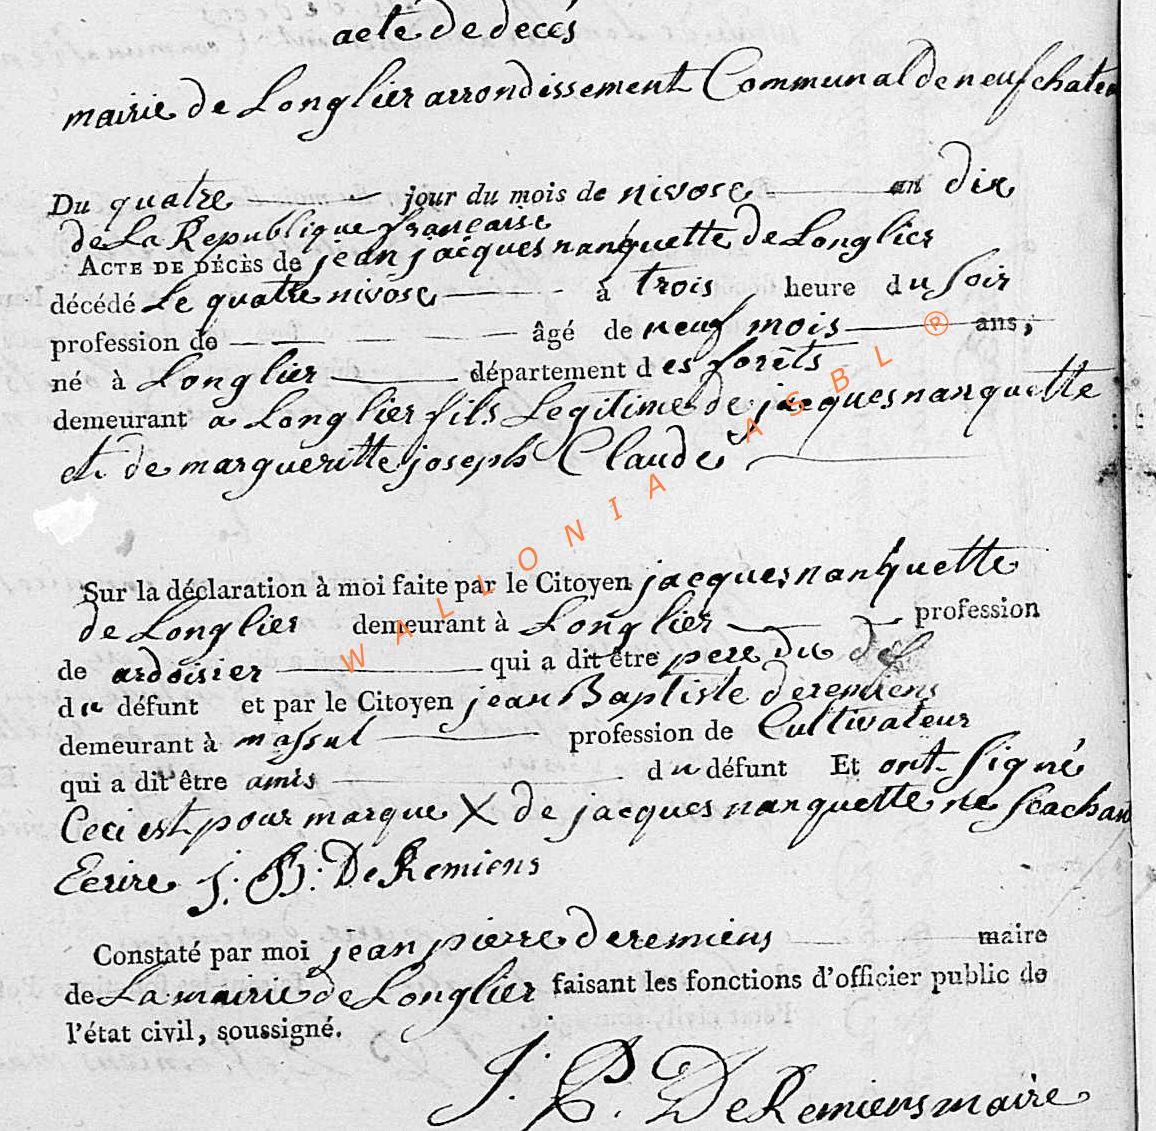 acte de decés
mairie de Longlier arrondissement Communal de neufchateau
Du quatre jour du mois de nivose an dix
de La Republique française
ACTE DE DÉCÈS de jean jacques nanquette de Longlier
décédé Le quatre nivose à trois heure du Soir
profession de âgé de neuf mois ans,
né à Longlier département des forêts
demeurant a Longlier fils Legitime de jacques nanquette
et de margueritte joseph Claude
Sur la déclaration à moi faite par le Citoyen jacques nanquette
de Longlier demeurant à Longlier profession
de ardoisier qui a dit être pere du def
du défunt et par le Citoyen jean Baptiste deremiens
demeurant à massul profession de Cultivateur
qui a dit être amis du défunt Et ont Signé
Ceci est pour marque X de jacques nanquette ne Scachan
Ecrire J: B: DeRemiens
Constaté par moi jean pierre deremiens maire
de La mairie de Longlier faisant les fonctions d'officier public de
l'état civil, soussigné.
J: P. DeRemiens maire
WALLONIA ASBL ®